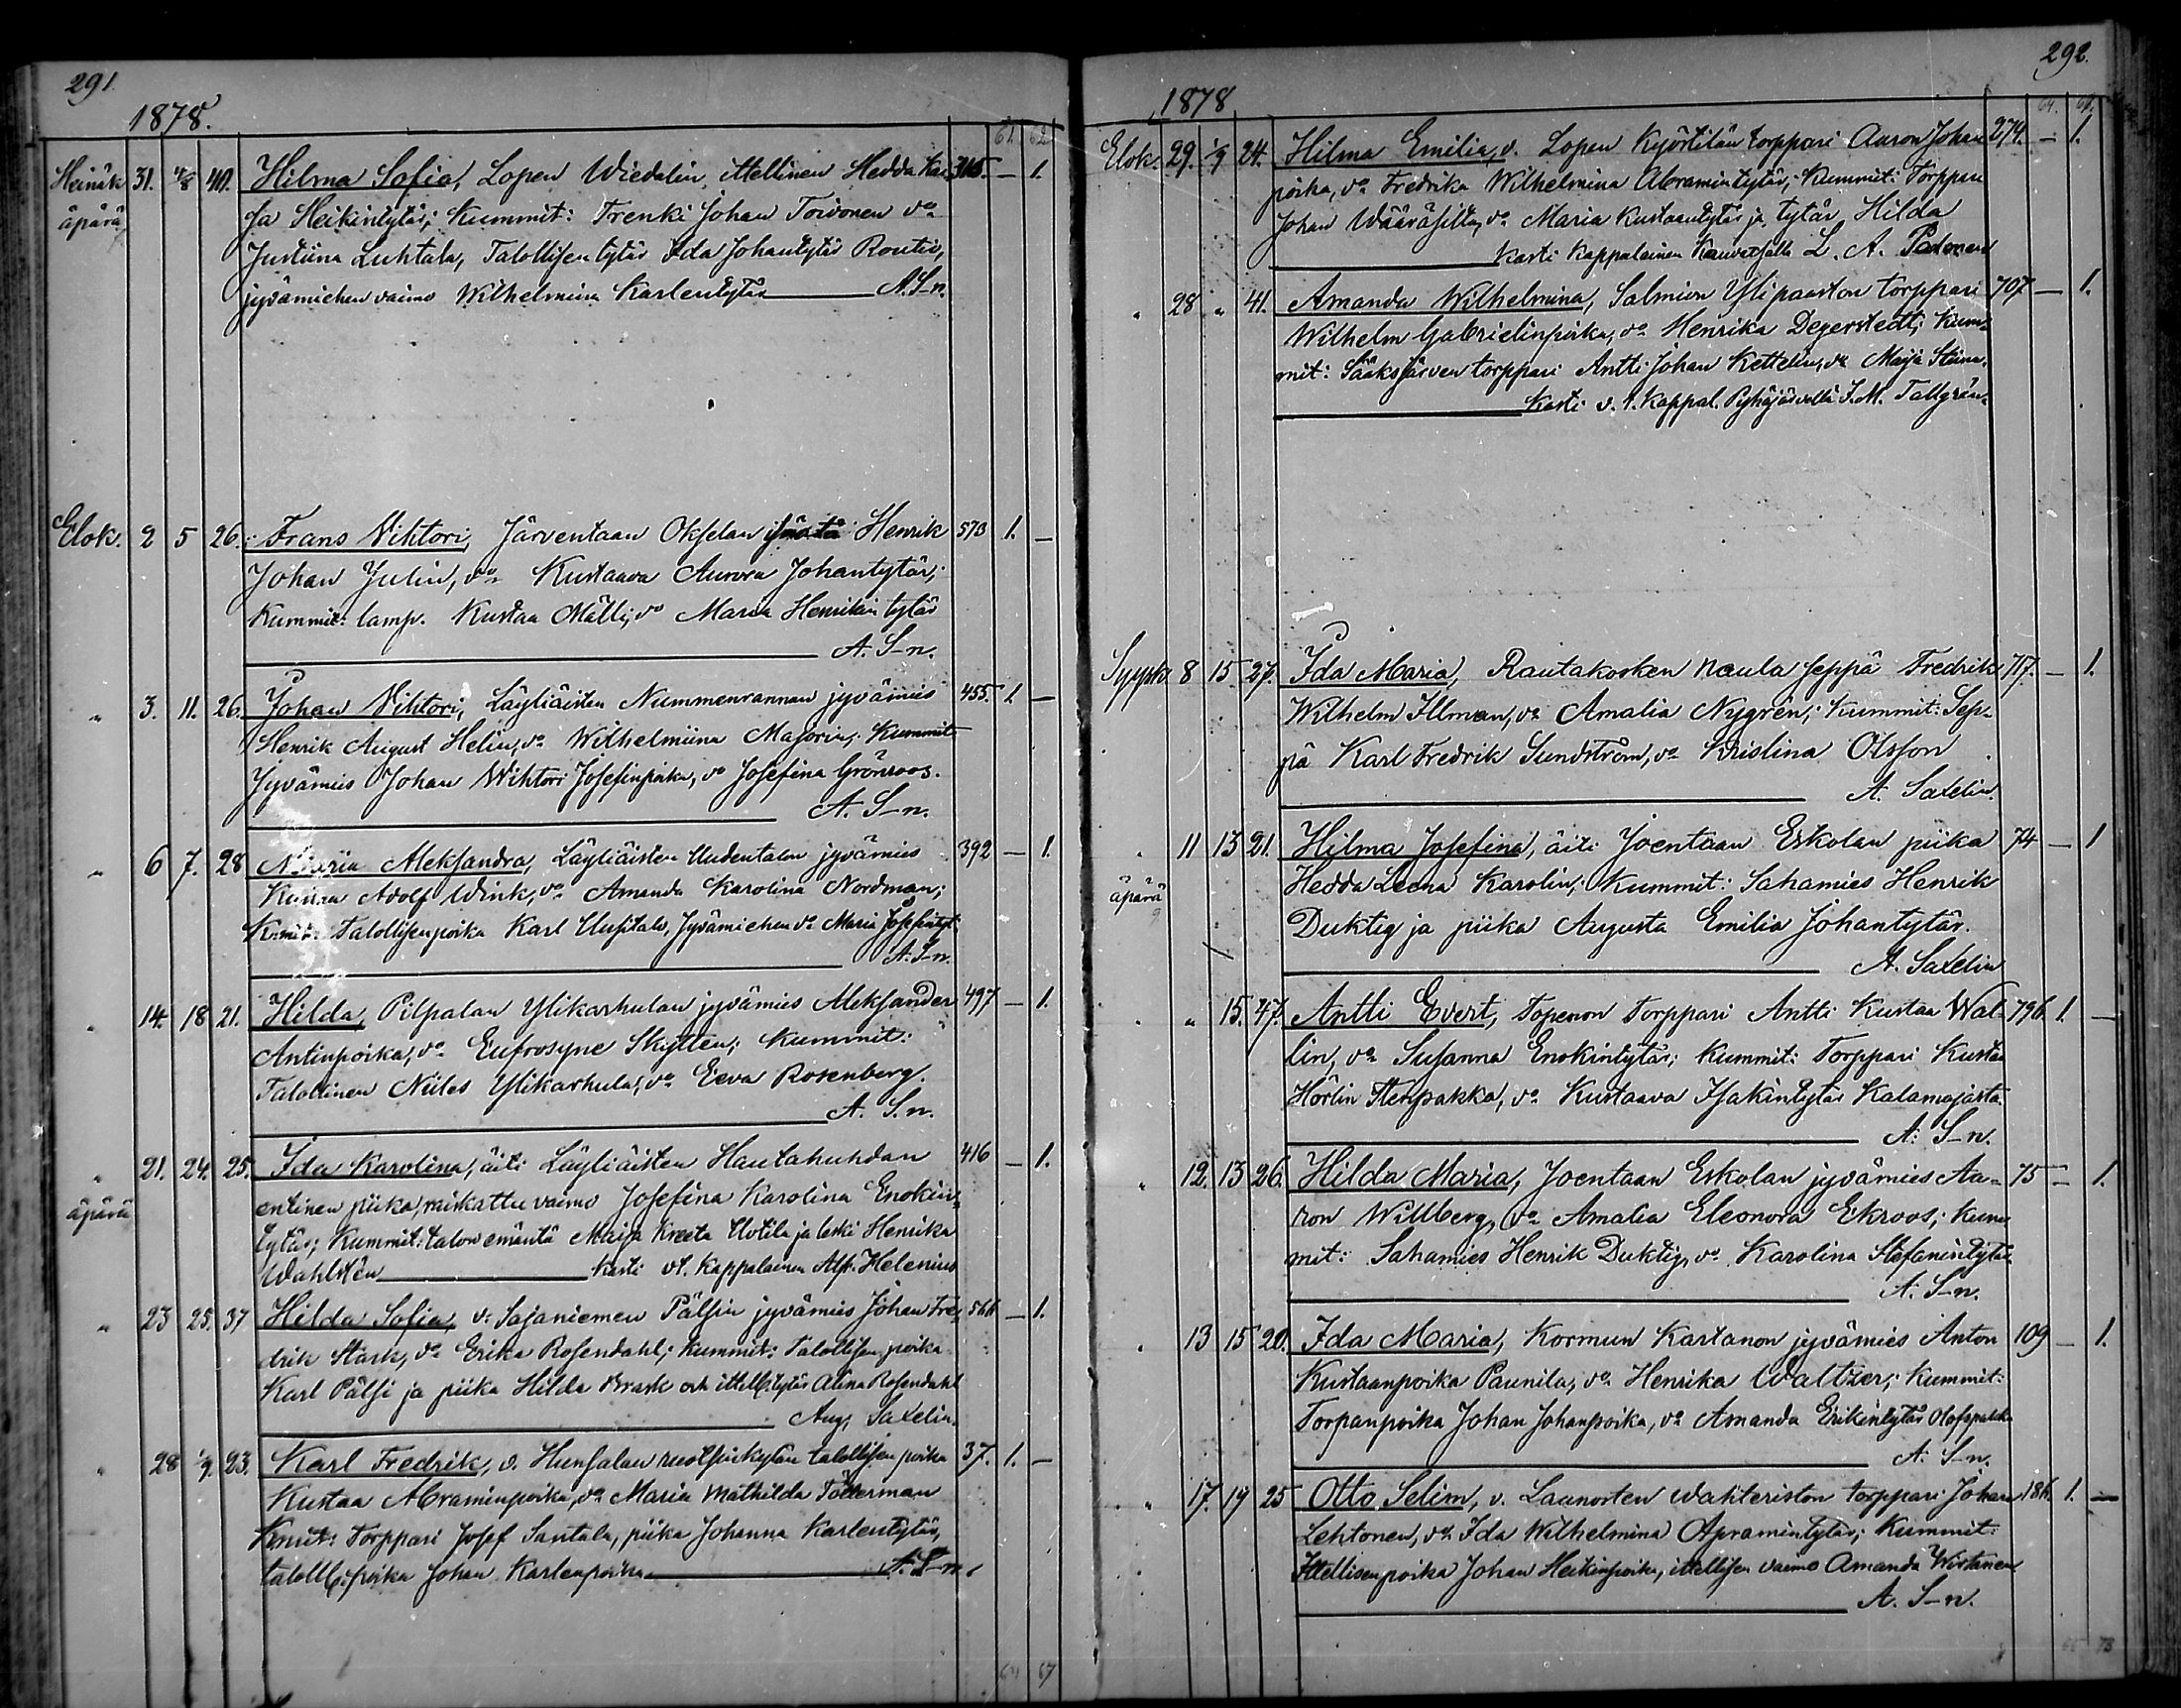 291.
1878.
61. 62
Heinäk 31. 4/8 40. Hilma Sofia, Lopen Wiedalin, ittellinen Hedda Kai- 315. — 1.
äpärä sa Heikintytär; Kummit: Trenki Johan Toivonen vo
Justiina Luhtala, Talollisen tytär Ida Johantytär Routio,
jyvämiehen vaimo Wilhelmina Karlentytär A. S-n.
Elok. 2 5 26. Frans Vihtori, Järventaan Okselan isäntä Henrik 573 1. —
Johan Julin, vo Kustaava Aurora Johantytär;
Kummit: lamp. Kustaa Mälli, vo Maria Henrikin tytär
A. S-n.
" 3. 11. 26. Johan Vihtori, Läyliäisten Nummenrannan jyvämies 455. 1. —
Henrik August Helin, vo Wilhelmiina Majorin; Kummit
Jyvämies Johan Wihtori Josefinpoika, vo Josefina Grönroos.
A. S-n.
" 6 7. 28 Maria Aleksandra, Läyliäisten Uudentalon jyvämies 392 — 1.
Adolf Wink, vo Amanda Karolina Nordman;
Talollisenpoika Karl Uusitalo, Jyvämiehen vo Maria
A. S-n.
" 14. 18 21. Hilda, Pilpalan Ylikarhulan jyvämies Aleksander 497 — 1.
Antinpoika, vo Eufrosyne Skyttén; Kummit:
Talollinen Niiles Ylikarhula, vo Eeva Rosenberg.
A. S-n.
" 21. 24. 25. Ida Karolina, äiti Läyliäisten Hautahuhdan 416 — 1.
äpärä entinen piika, raiskattu vaimo Josefina Karolina Enokin-
tytär; Kummit: talon emäntä Maija Kreeta Uotila ja leski Henrika
Wahlstén kasti vt. Kappalainen Alfr. Helenius
" 23 25. 37 Hilda Sofia, v. Sajaniemen Pälsin jyvämies Johan Fre- 566 — 1.
drik Stark, vo Erika Rosendahl; Kummit: Talollisen poika
Karl Pälsi ja piika Hilda Brask och ittell. tytär Alina Rosendahl
Aug. Saxelin.
" 28 1/9. 23. Karl Fredrik, v. Hunsalan talollisen poika 37. 1. —
Kustaa Abraminpoika, vo Maria Mathilda Töderman
Kmit: Torppari Josef Santala, piika Johanna Karlentytär,
taloll. poika Johan Karlenpoika A. S-n.
64 67
292.
1878
64. 66.
Elok. 29. 1/9 24. Hilma Emilia, v. Lopen Kyörtilän torppari Aaron Johan 274. — 1.
poika, vo Fredrika Wilhelmina Abramintytär; Kummit: Torppari
Johan Wääräsilta, vo Maria Kustaantytär ja tytär Hilda
kasti Kappalainen Kauvatsalla L. A. Padonen
" 28 " 41. Amanda Wilhelmina, Salmion Ylipaaston torppari 707 — 1.
Wilhelm Gabrielinpoika, vo Henrika Degerstedt; Kum-
mit: Sääksjärven torppari Antti Johan Kettelin, vo Maija Stiina.
Kasti v.t. Kappal. Pyhäjärvellä J. M. Tallgrén.
Syysk 8 15 27. Ida Maria, Rautakosken naula seppä Fredrik 717. — 1.
Wilhelm Illman, vo Amalia Nygrén; Kummit: Sep-
pä Karl Fredrik Sundström, vo Kristina Olsson
A. Saxelin.
" 11 13 21. Hilma Josefina, äiti Joentaan Eskolan piika 74 — 1
äpärä Hedda Leena Karolin; Kummit: Sahamies Henrik
Duktig ja piika Augusta Emilia Johantytär.
A. Saxelin
" " 15. 47. Antti Evert, Topenon Torppari Antti Kustaa Wal- 796 1. —
lin, vo Susanna Enokintytär; Kummit: Torppari Kustaa
Hörlin Stenpakka, vo Kustaava Isakintytär Kalamajasta.
A: S-n.
" 12. 13 26. Hilda Maria, Joentaan Eskolan jyvämies Aa- 75 — 1.
ron Willberg, vo Amalia Eleonora Ekroos; Kum
mit: Sahamies Henrik Duktig, vo Karolina Stefanintytär
A. S-n.
" 13 15 20. Ida Maria, Kormun Kartanon jyvämies Anton 109 — 1.
Kustaanpoika Paunila, vo Henrika Waltzer; Kummit:
Torpanpoika Johan Johanpoika, vo Amanda Erikintytär
A: S-n.
" 17. 19 25 Otto Selim, v. Launosten Wahteriston torppari Johan 186. 1. —
Lehtonen, vo Ida Wilhelmina Apramintytär; Kummit:
Ittellisenpoika Johan Heikinpoika, ittellisen vaimo Amanda Wirtanen
A. S-n.
65 73